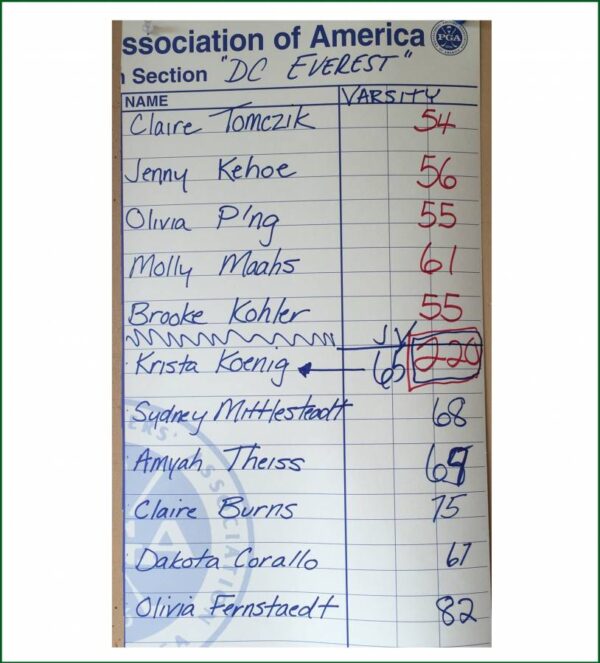 ssociation of America PGA
n Section "DC EVEREST"
NAME VARSITY
Claire Tomczik 54
Jenny Kehoe 56
Olivia P'ng 55
Molly Maahs 61
Brooke Kohler 55
JV
Krista Koenig 65 220
Sydney Mittlesteadt 68
Amyah Theiss 69
Claire Burns 75
Dakota Corallo 67
Olivia Fernstaedt 82
ERS' ASSOCIATION